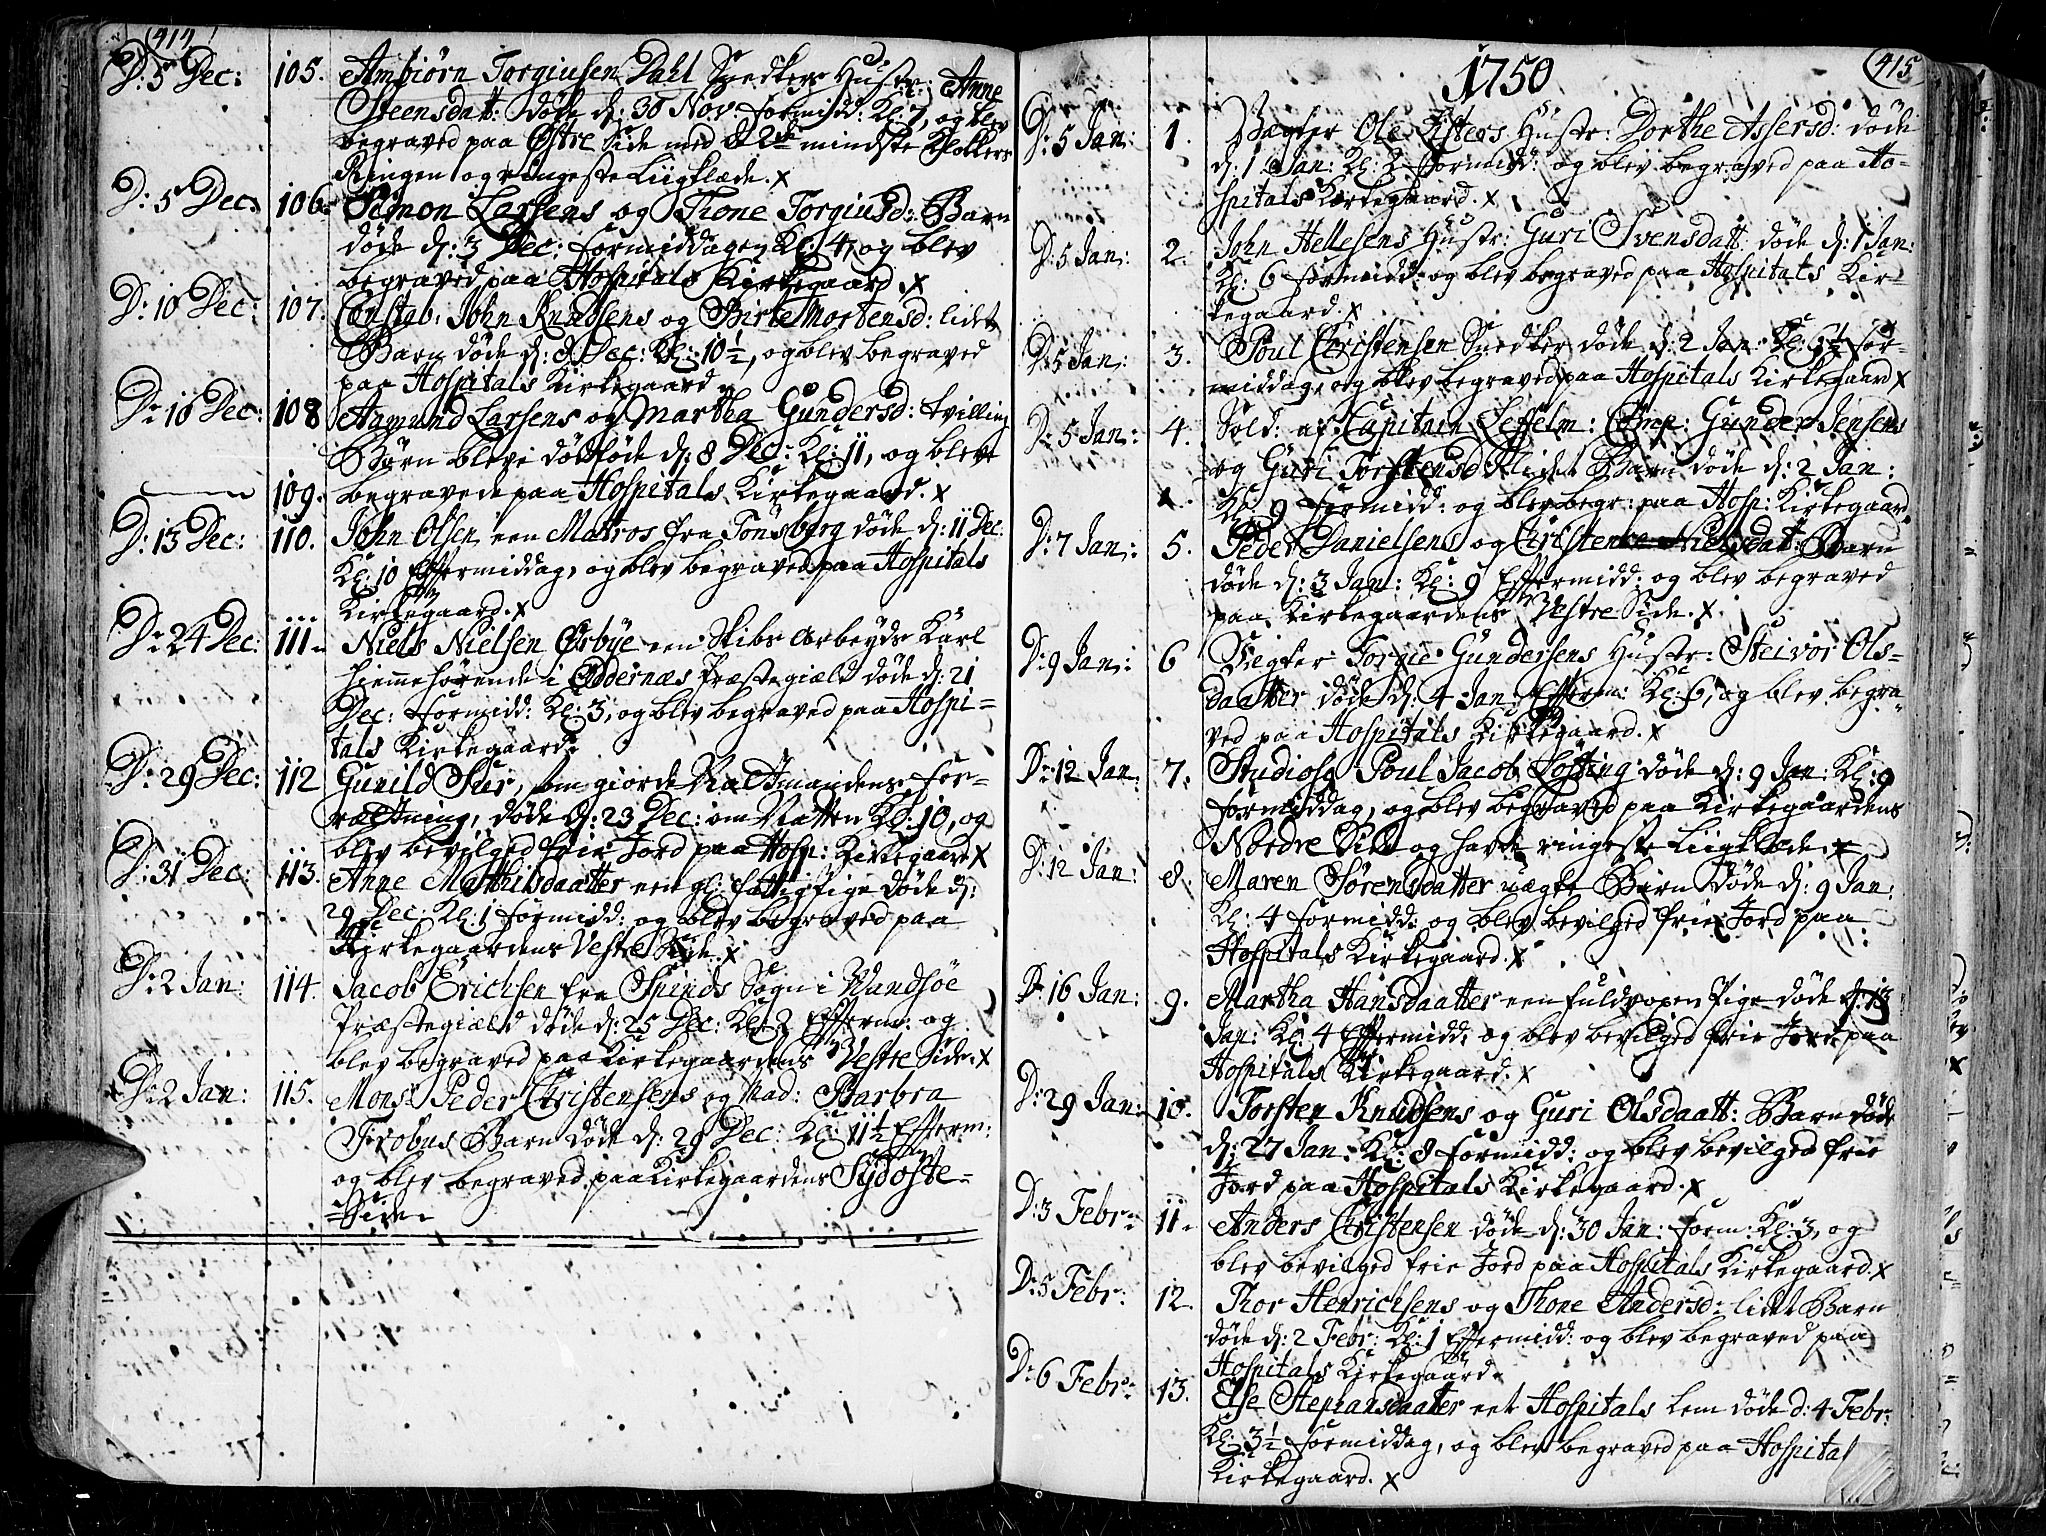 414
D: 5 Dec: 105. Ambiørn Torgiusen Dahl Snedkers Hustr: Anne
Steensdatt: døde d: 30 Nov: formidd: Kl: 7, og blev
begraved paa Østre Side med d 2de mindste Klokkers
Ringen og ringeste Liigklæde. x
D: 5 Dec: 106. Simon Larsens og Thone Torgiusd: Barn
døde d: 3 Dec: formiddagen Kl: 4, og blev
begraved paa Hospitals Kirkegaard x
D: 10 Dec: 107. Constab: John Knudsens og Birte Mortensd: lidet
Barn døde d: 8 Dec: Kl: 10½, og blev begraved
paa Hospitals Kirkegaard
D: 10 Dec: 108 Aamund Larsens og Martha Gundersd: tvilling
Børn bleve dødføde d: 8 Dec: Kl: 11, og bleve
109. begravede paa Hospitals Kirkegaard. x
D: 13 Dec: 110. John Olsen een Matros fra Tønsberg døde d: 11 Dec:
Kl: 10 Eftermiddag, og blev begraved paa Hospitals
Kirkegaard. x
D: 24 Dec: 111. Niels Nielsen Ørbye een Skibs Arbeyds Karl
hiemmehørende i Oddernæs Præstegiæld døde d: 21
Dec: formidd: Kl: 3, og blev begraved paa Hospi-
tals Kirkegaard.
D: 29 Dec: 112 Gunild Siur, som giorde Natmandens for-
rætning, døde d: 23 Dec: om Natten Kl: 10, og
blev bevilged frie Jord paa Hosp: Kirkegaard x
D: 31 Dec: 113. Anne Mathisdaatter een gl: fattig Pige døde d:
29 Dec: Kl: 1 formidd: og blev begraved paa
Kirkegaardens Vestre Side. x
D: 2 Jan: 114. Jacob Erichsen fra Spinds Sogn i Vandsøe
Præstegiæld døde d: 25 Dec: Kl: 2 Efterm: og
blev begraved paa Kirkegaardens Vestre Side. x
D: 2 Jan: 115. Monsr Peder Christensens og Mad: Barbra
Frobus Barn døde d: 29 Dec: Kl: 11½ Efterm:
og blev begraved paa Kirkegaardens Sydoste-
Side
415
1750
D: 5 Jan: 1. Vægter Ole Listers Hustr: Dorthe Assersd: døde
d: 1 Jan: Kl: 2 formidd: og blev begraved paa Ho-
spitals Kirkegaard. x
D: 5 Jan: 2. John Hellesens Hustr: Guri Svensdatt: døde d: 1 Jan:
Kl: 6 formidd: og blev begraved paa Hospitals Kir-
kegaard. x
D: 5 Jan: 3. Poul Christensen Snedker døde d: 2 Jan: Kl: 6½ for-
middag, og blev begraved paa Hospitals Kirkegaard x
D: 5 Jan: 4. Sold: af Capitain Seffelm: Comp: Gunder Jensens
og Guri Torstensd: lidet Barn døde d: 2 Jan:
Kl: 9 formidd: og blev begr: paa Hosp: Kirkegaard
D: 7 Jan: 5. Peder Danielsens og Christence Nielsdat: Barn
døde d: 3 Jan: Kl: 9 Eftermidd: og blev begraved
paa Kirkegaardens Vestre Side. x
D: 9 Jan: 6 Vegter Torgie Gundersens Hustr: Steivor Ols-
daatter døde d: 4 Jan: Efterm: Kl: 6, og blev begra-
ved paa Hospitals Kirkegaard. x
D: 12 Jan: 7. Studioso Poul Jacob Losting døde d: 9 Jan: Kl: 9
formiddag, og blev begraved paa Kirkegaardens
Nordre Side og havde ringeste Liigklæde. x
D: 12 Jan: 8. Maren Sørensdaatter uægte Barn døde d: 9 Jan:
Kl: 4 formidd: og blev bevilged frie Jord paa
Hospitals Kirkegaard. x
D: 16 Jan: 9. Martha Hansdaatter een fuldvoxen Pige døde d: 13
Jan: Kl: 4 Eftermidd: og blev bevilged frie Jord paa
Hospitals Kirkegaard. x
D: 29 Jan: 10. Torsten Knudsens og Guri Olsdaatt: Barn døde
d: 27 Jan: Kl: 8 formidd: og blev bevilged frie
Jord paa Hospitals Kirkegaard. x
D: 3 Febr: 11. Anders Christensen døde d: 30 Jan: form: Kl: 3, og
blev bevilged frie Jord paa Hospitals Kirkegaard. x
D: 5 Febr: 12. Thor Henrichsens og Thone Andersd: lidet Barn
døde d: 2 Febr: Kl: 1 Eftermidd: og blev begraved paa
Hospitals Kirkegaard.
D: 6 Febr: 13. Else Stephansdaatter eet Hospitals Lem døde d: 4 Febr:
Kl: 3½ formiddag, og blev begraved paa Hospital
Kirkegaard. x